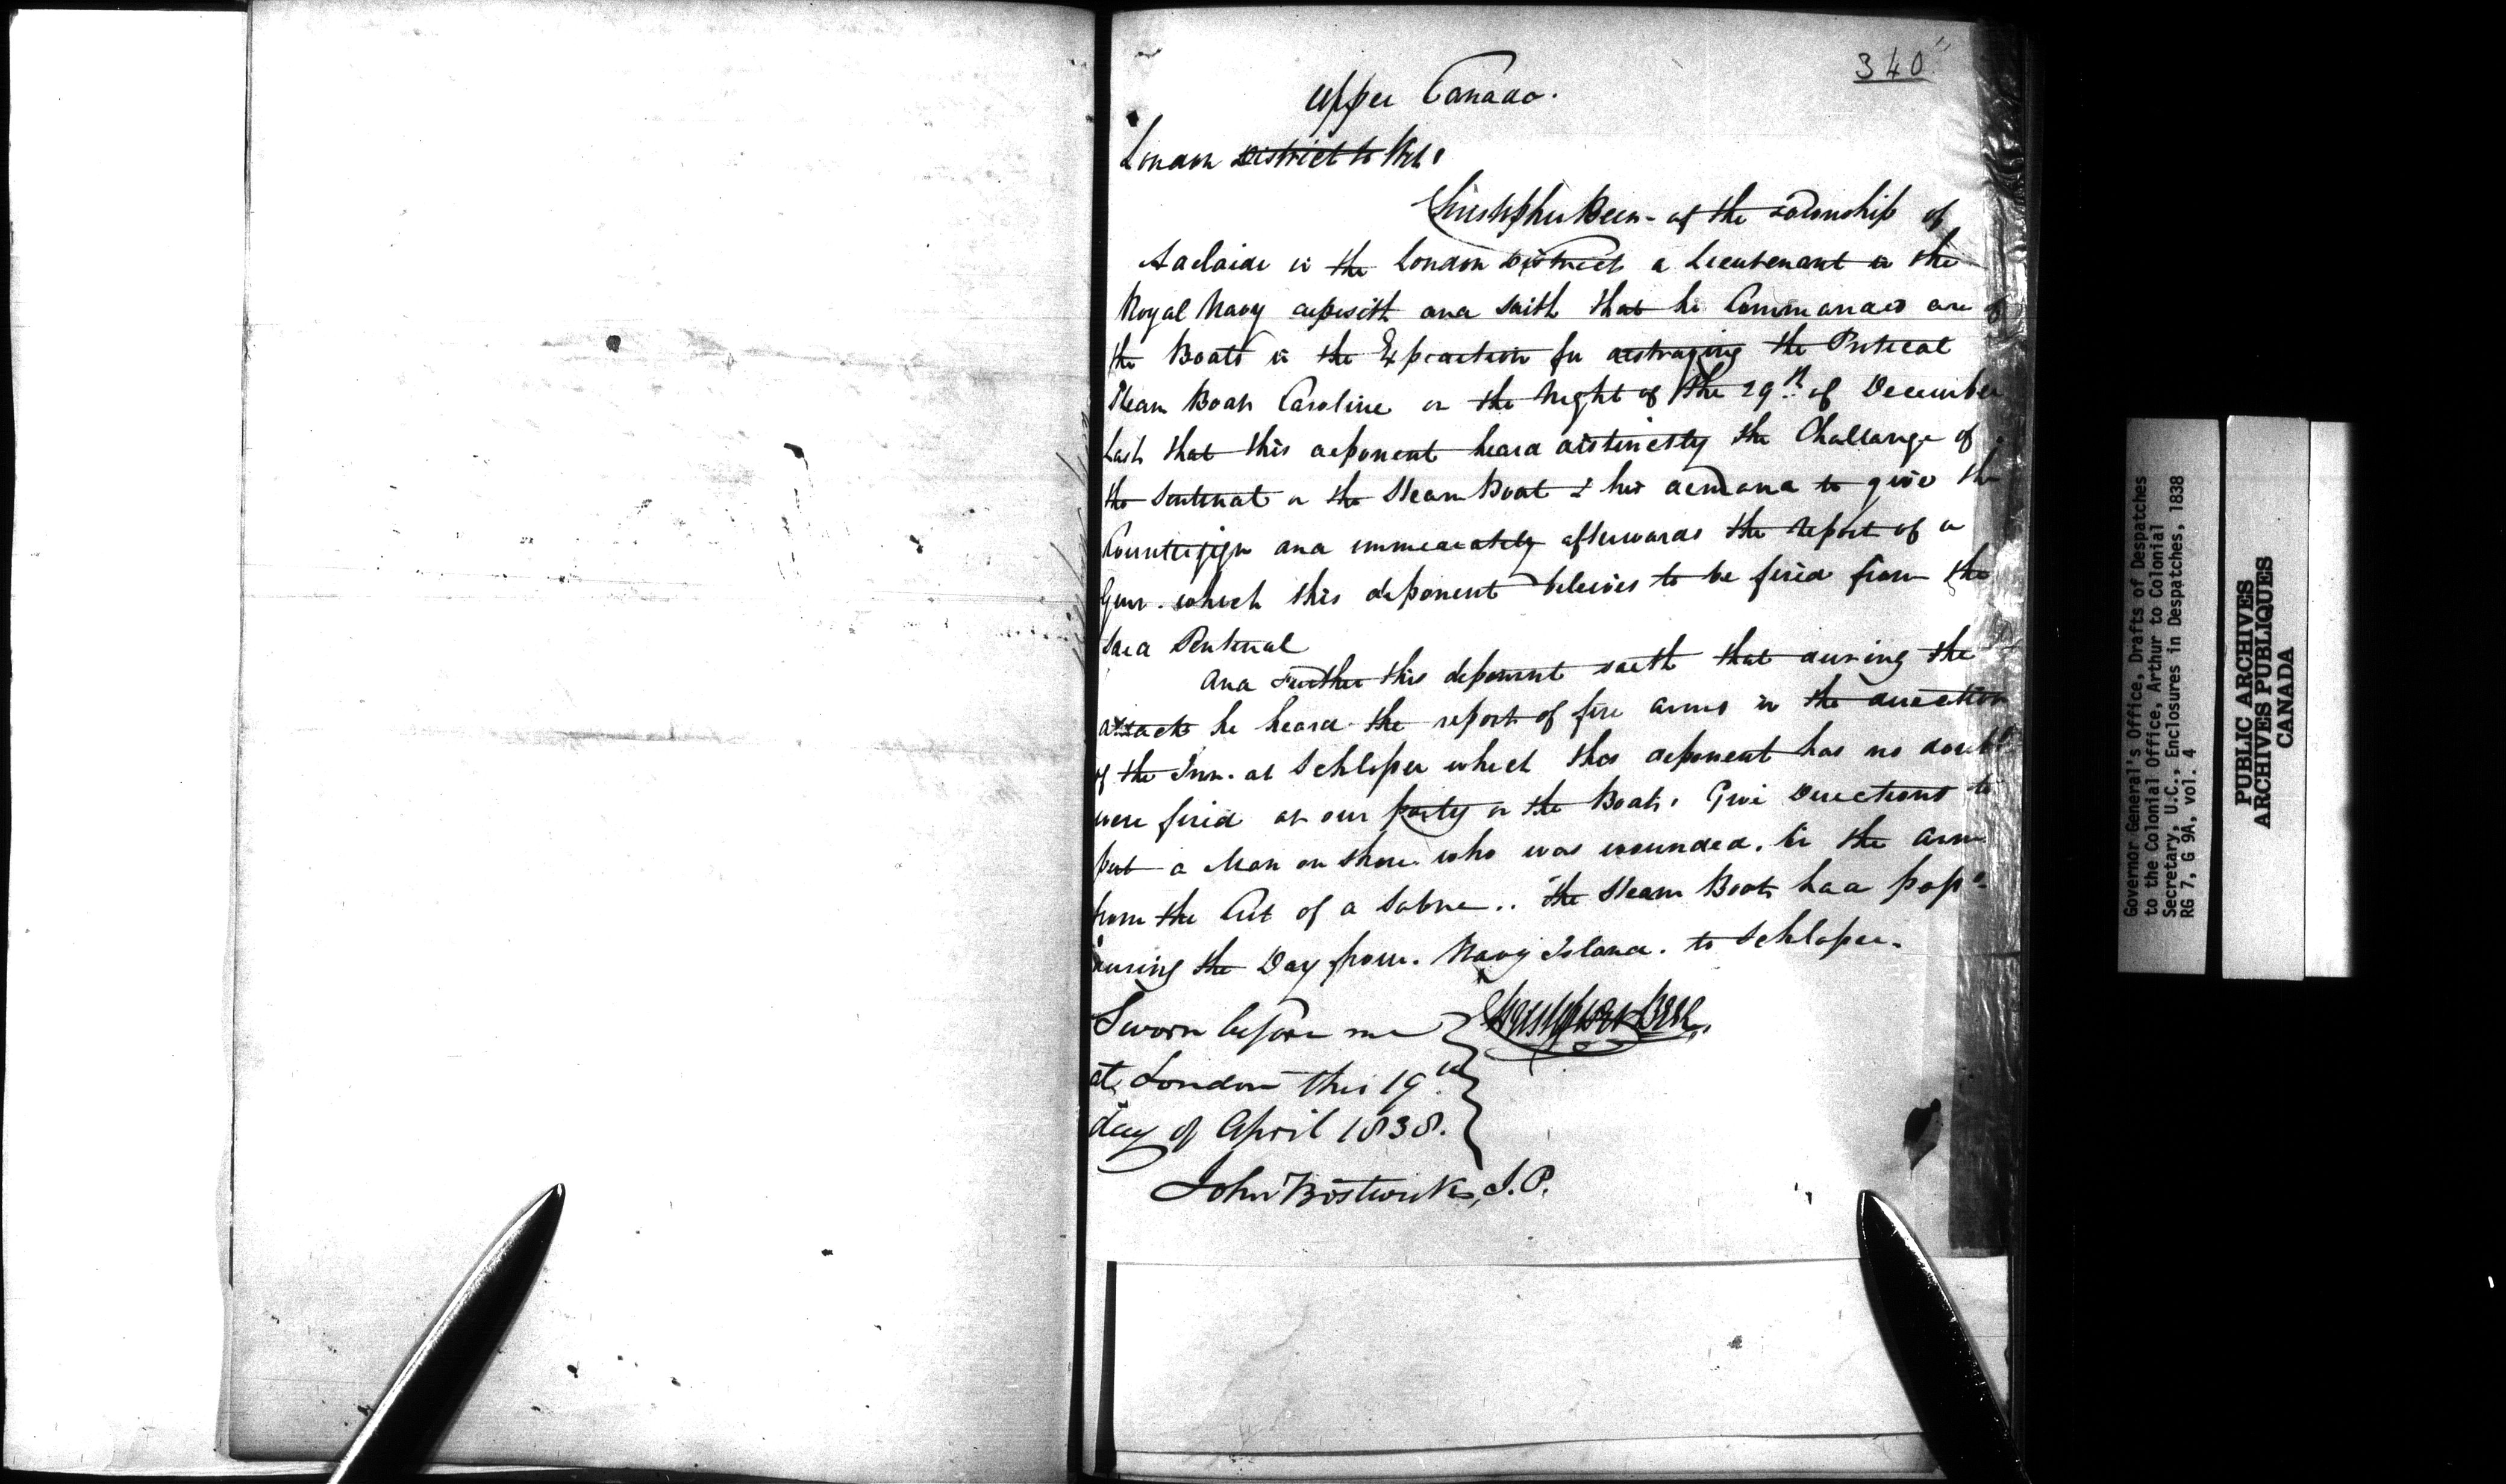 340
Upper Canada.
London District to Wit.
Christopher Beer - of the Township of
Adelaide in the London District a Lieutenant in the
Royal Navy deposeth and saith that he Commanded one of
the Boats in the Expedition for destroying the Piratical
Steam Boat Caroline on the Night of the 29th of December
Last that this deponent heard distinctly the Challange of
the Sentinal on the Steam Boat & his demand to give the
Countersign and immediately afterwards the report of a
Gun. which this deponent beleives to be fired from the
said Sentinal
And Further this deponent saith that during the
attack he heard the report of fire arms in the direction
of the Inn. at Schloper which this deponent has no doubt
were fired at our party in the Boats. Give Directions to
put a Man on shore who was wounded. in the arm
from the Cut of a Sabre.. the Steam Boat had passd
during the Day from. Navy Island. to Schloper.
Sworn before me
Christopher Beer
at London this 19th
day of April 1838.
John Bostwick, J.P.
Governor General's Office, Drafts of Despatches
to the Colonial Office, Arthur to Colonial
Secretary, U.C., Enclosures in Despatches, 1838
RG 7, G 9A, vol. 4
PUBLIC ARCHIVES
ARCHIVES PUBLIQUES
CANADA